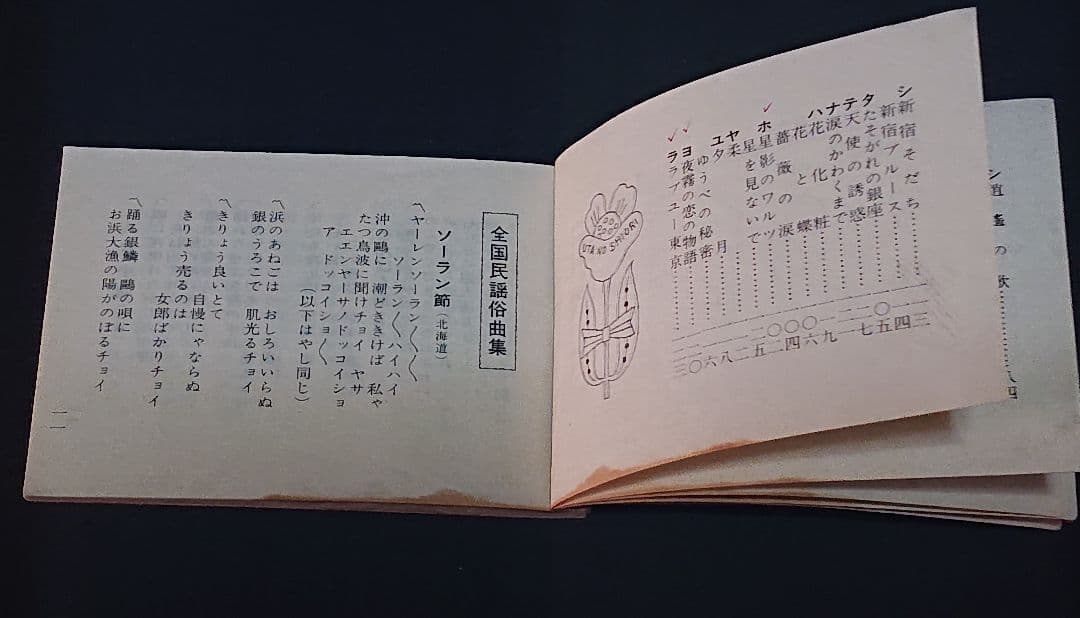 シ
新宿そだち……三
新宿ブルース……四
タ
たそがれの銀座……五
テ
天使の誘惑……七
ナ
涙のかわくまで
ハ
花化粧
花と蝶
薔薇の涙
ホ
星影のワルツ
星を見ないで
ヤ
柔
ユ
夕月
ゆうべの秘密
ヨ
夜霧の恋の物語
ラ
ラブユー東京
UTA NO SHIORI
全国民謡俗曲集
ソーラン節(北海道)
〽ヤーレンソーラン〱〱
ソーラン〱ハイハイ
沖の鷗に 潮どききけば 私ゃ
たつ鳥波に聞けチョイ ヤサ
エエンヤーサノドッコイショ
ア ドッコイショ〱
(以下はやし同じ)
〽浜のあねごは おしろいいらぬ
銀のうろこで 肌光るチョイ
〽きりょう良いとて
自慢にゃならぬ
きりょう売るのは
女郎ばかりチョイ
〽踊る銀鱗 鷗の唄に
お浜大漁の陽がのぼるチョイ
一一